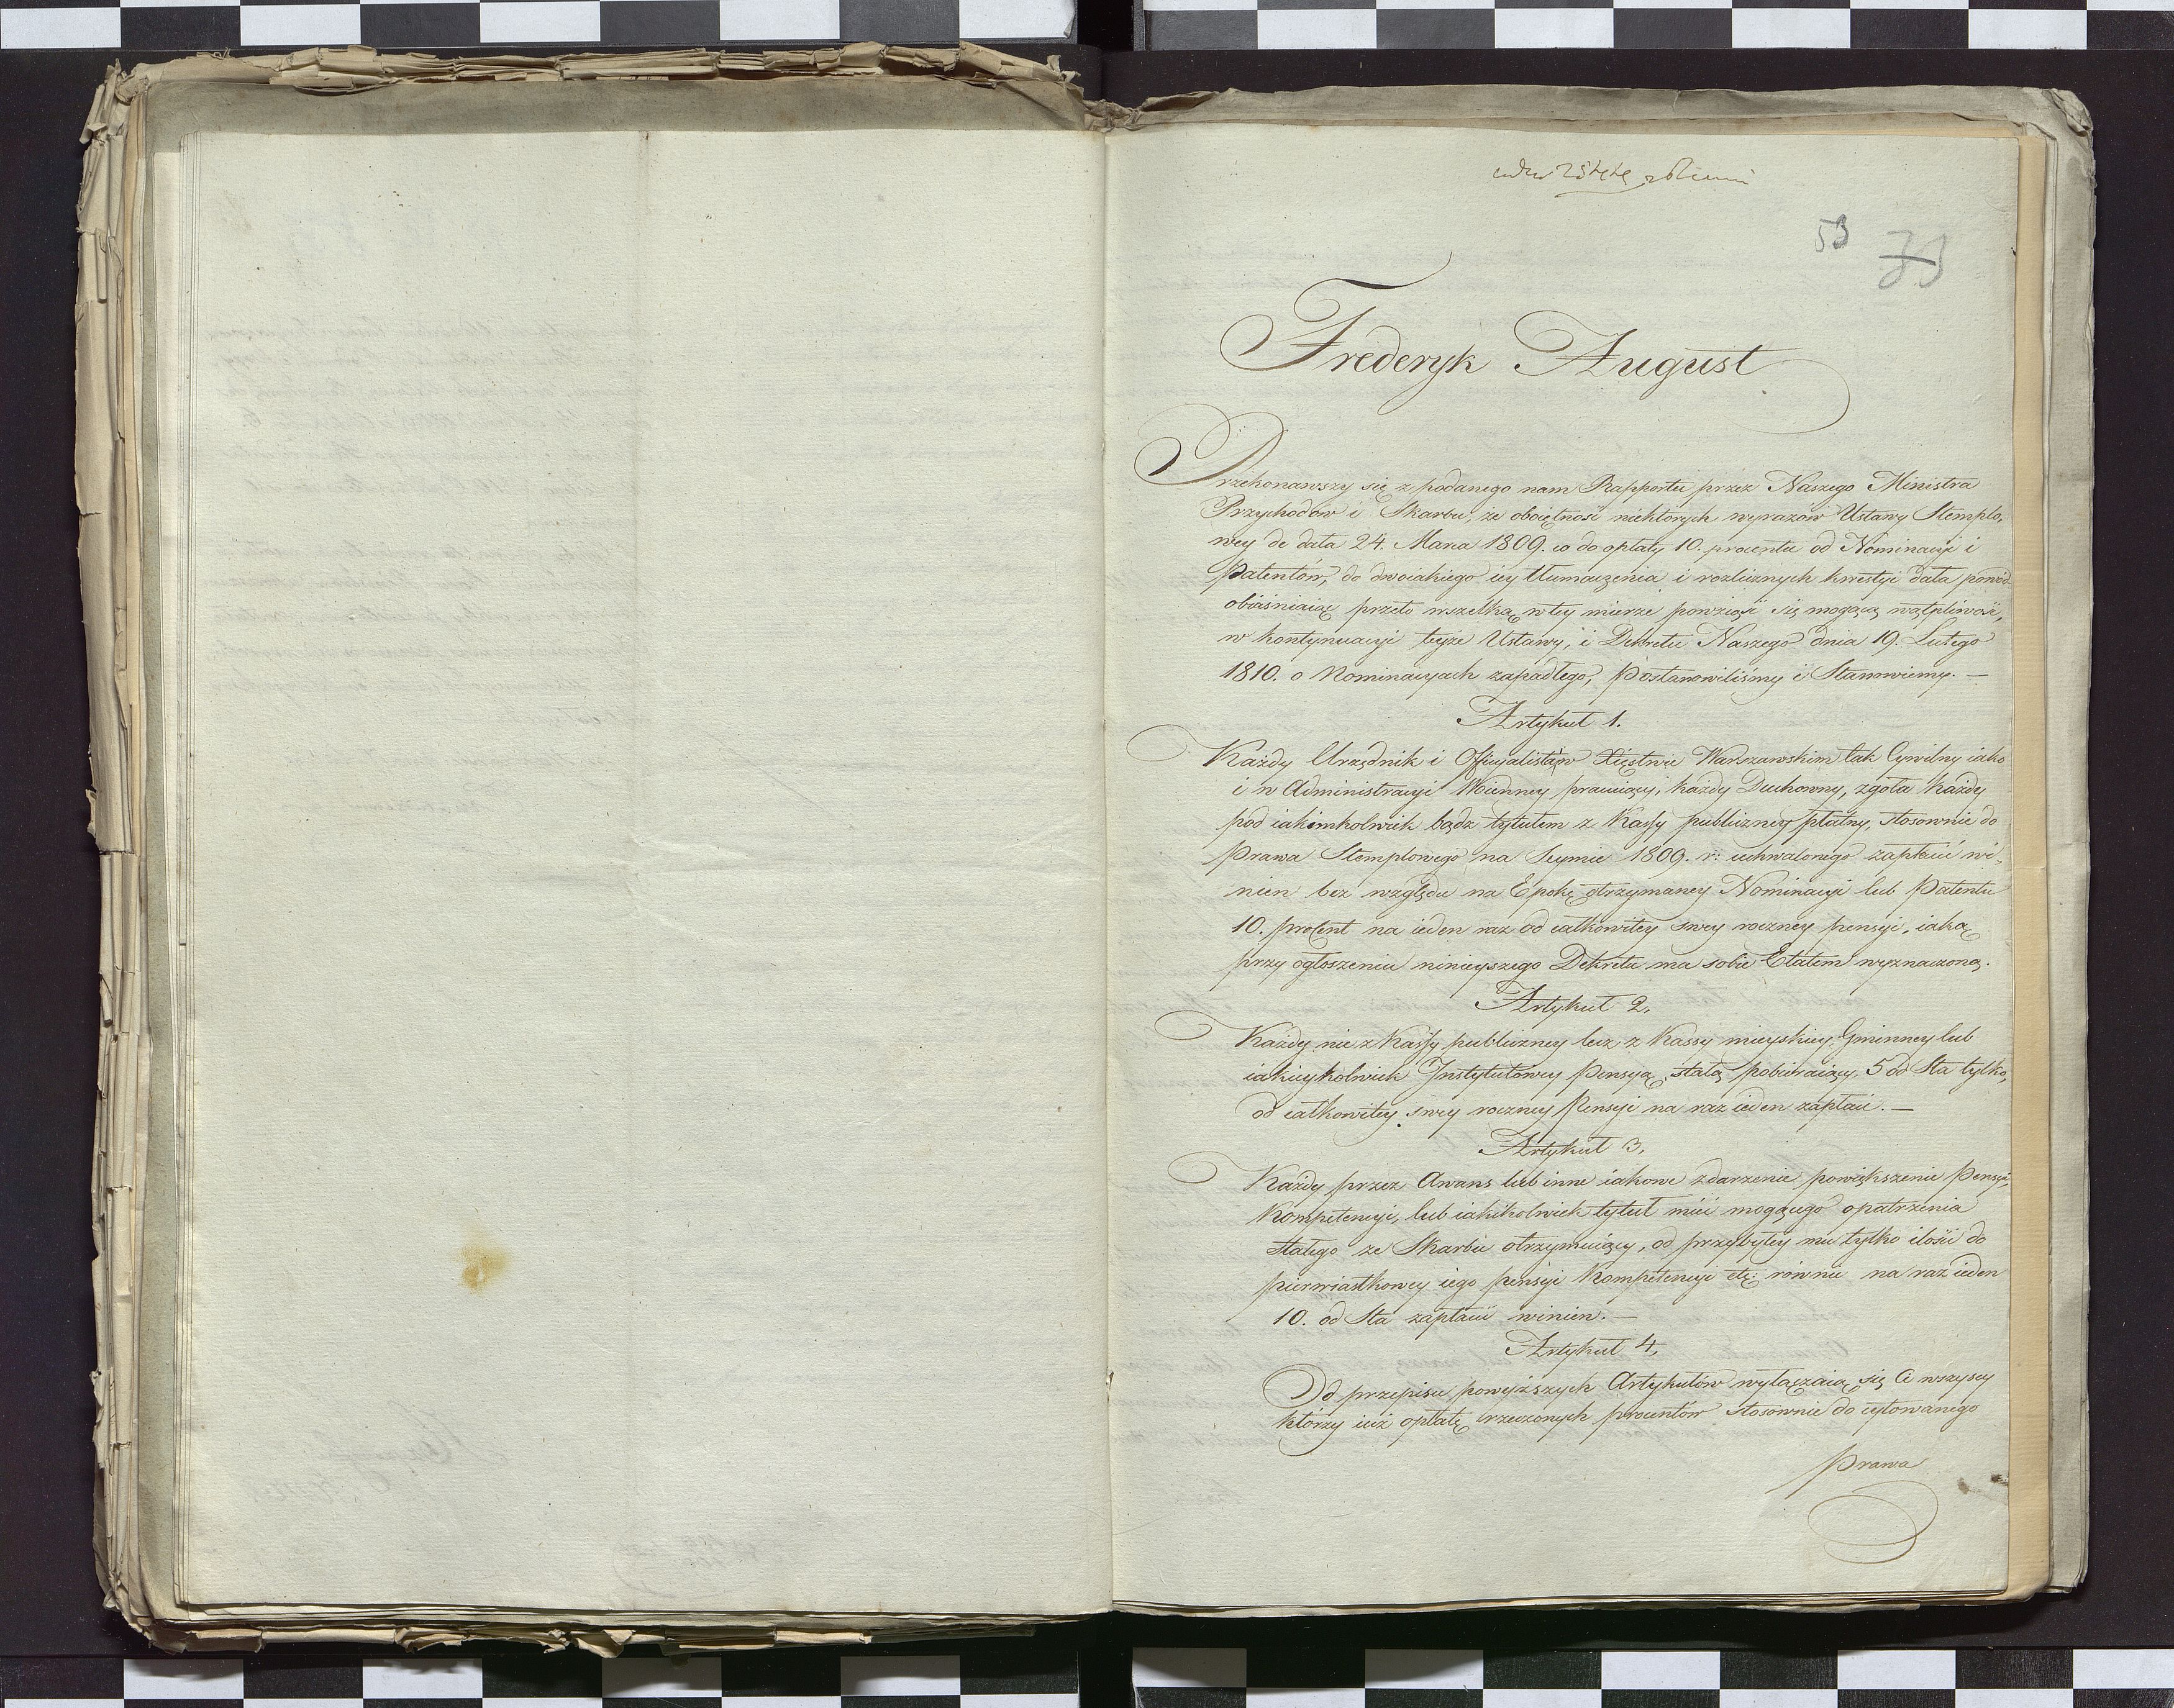 53 73
Frederyk August
Przekonawszy się z podanego nam Rapportu przez Naszego Ministra
Przychodów i Skarbu, że oboiętność niektorych wyrazów Ustawy Stemplo,
wey de data 24. Marca 1809. co do opłaty 10. procentu od Nominacyi i
Patentów, do dwoiakiego iey tłumaczenia i rozlicznych kwestyi dała powód
obiaśniaiąc przeto wszelką w tey mierze powziąść się mogącą wątpliwość,
w kontynuacyi teyże Ustawy, i Dekretu Naszego dnia 19. Lutego
1810. o Nominacyach zapadłego, Postanowiliśmy i Stanowiemy. —
Artykuł 1.
Każdy Urzędnik i Officyalista w Xięstwie Warszawskim tak Cywilny iako
i w Administracyi Woienney pracuiący, każdy Duchowny, zgoła każdy
pod iakimkolwiek bądz tytułem z Kassy publiczney płatny, stosownie do
Prawa Stemplowego na Seymie 1809. r: uchwalonego zapłacić wi-
nien bez względu na Epokę otrzymaney Nominacyi lub Patentu
10. procent na ieden raz od całkowitey swey roczney pensyi, iaką
przy ogłoszeniu ninieyszego Dekretu ma sobie Etatem wyznaczoną.
Artykuł 2.
Każdy nie z Kassy publiczney lecz z Kassy mieyskiey, Gminney lub
iakieykolwiek Instytutowey Pensyą stałą pobieraiący, 5 od Sta tylko,
od całkowitey swey roczney Pensyi na raz ieden zapłaci. —
Artykuł 3.
Każdy przez Awans lub inne iakowe zdarzenie powiększenie Pensyi,
Kompetencyi, lub iakikolwiek tytuł mieć mogącego opatrzenia
stałego ze Skarbu otrzymuiący, od przybyłey mu tylko ilości do
pierwiastkowey iego pensyi Kompetencyi etc: równie na raz ieden
10. od Sta zapłacić winien. —
Artykuł 4.
Od przepisu powyższych Artykułów wyłączaią się Ci wszyscy
którzy iuż opłatę rzeczonych procentów stosownie do cytowanego
Prawa